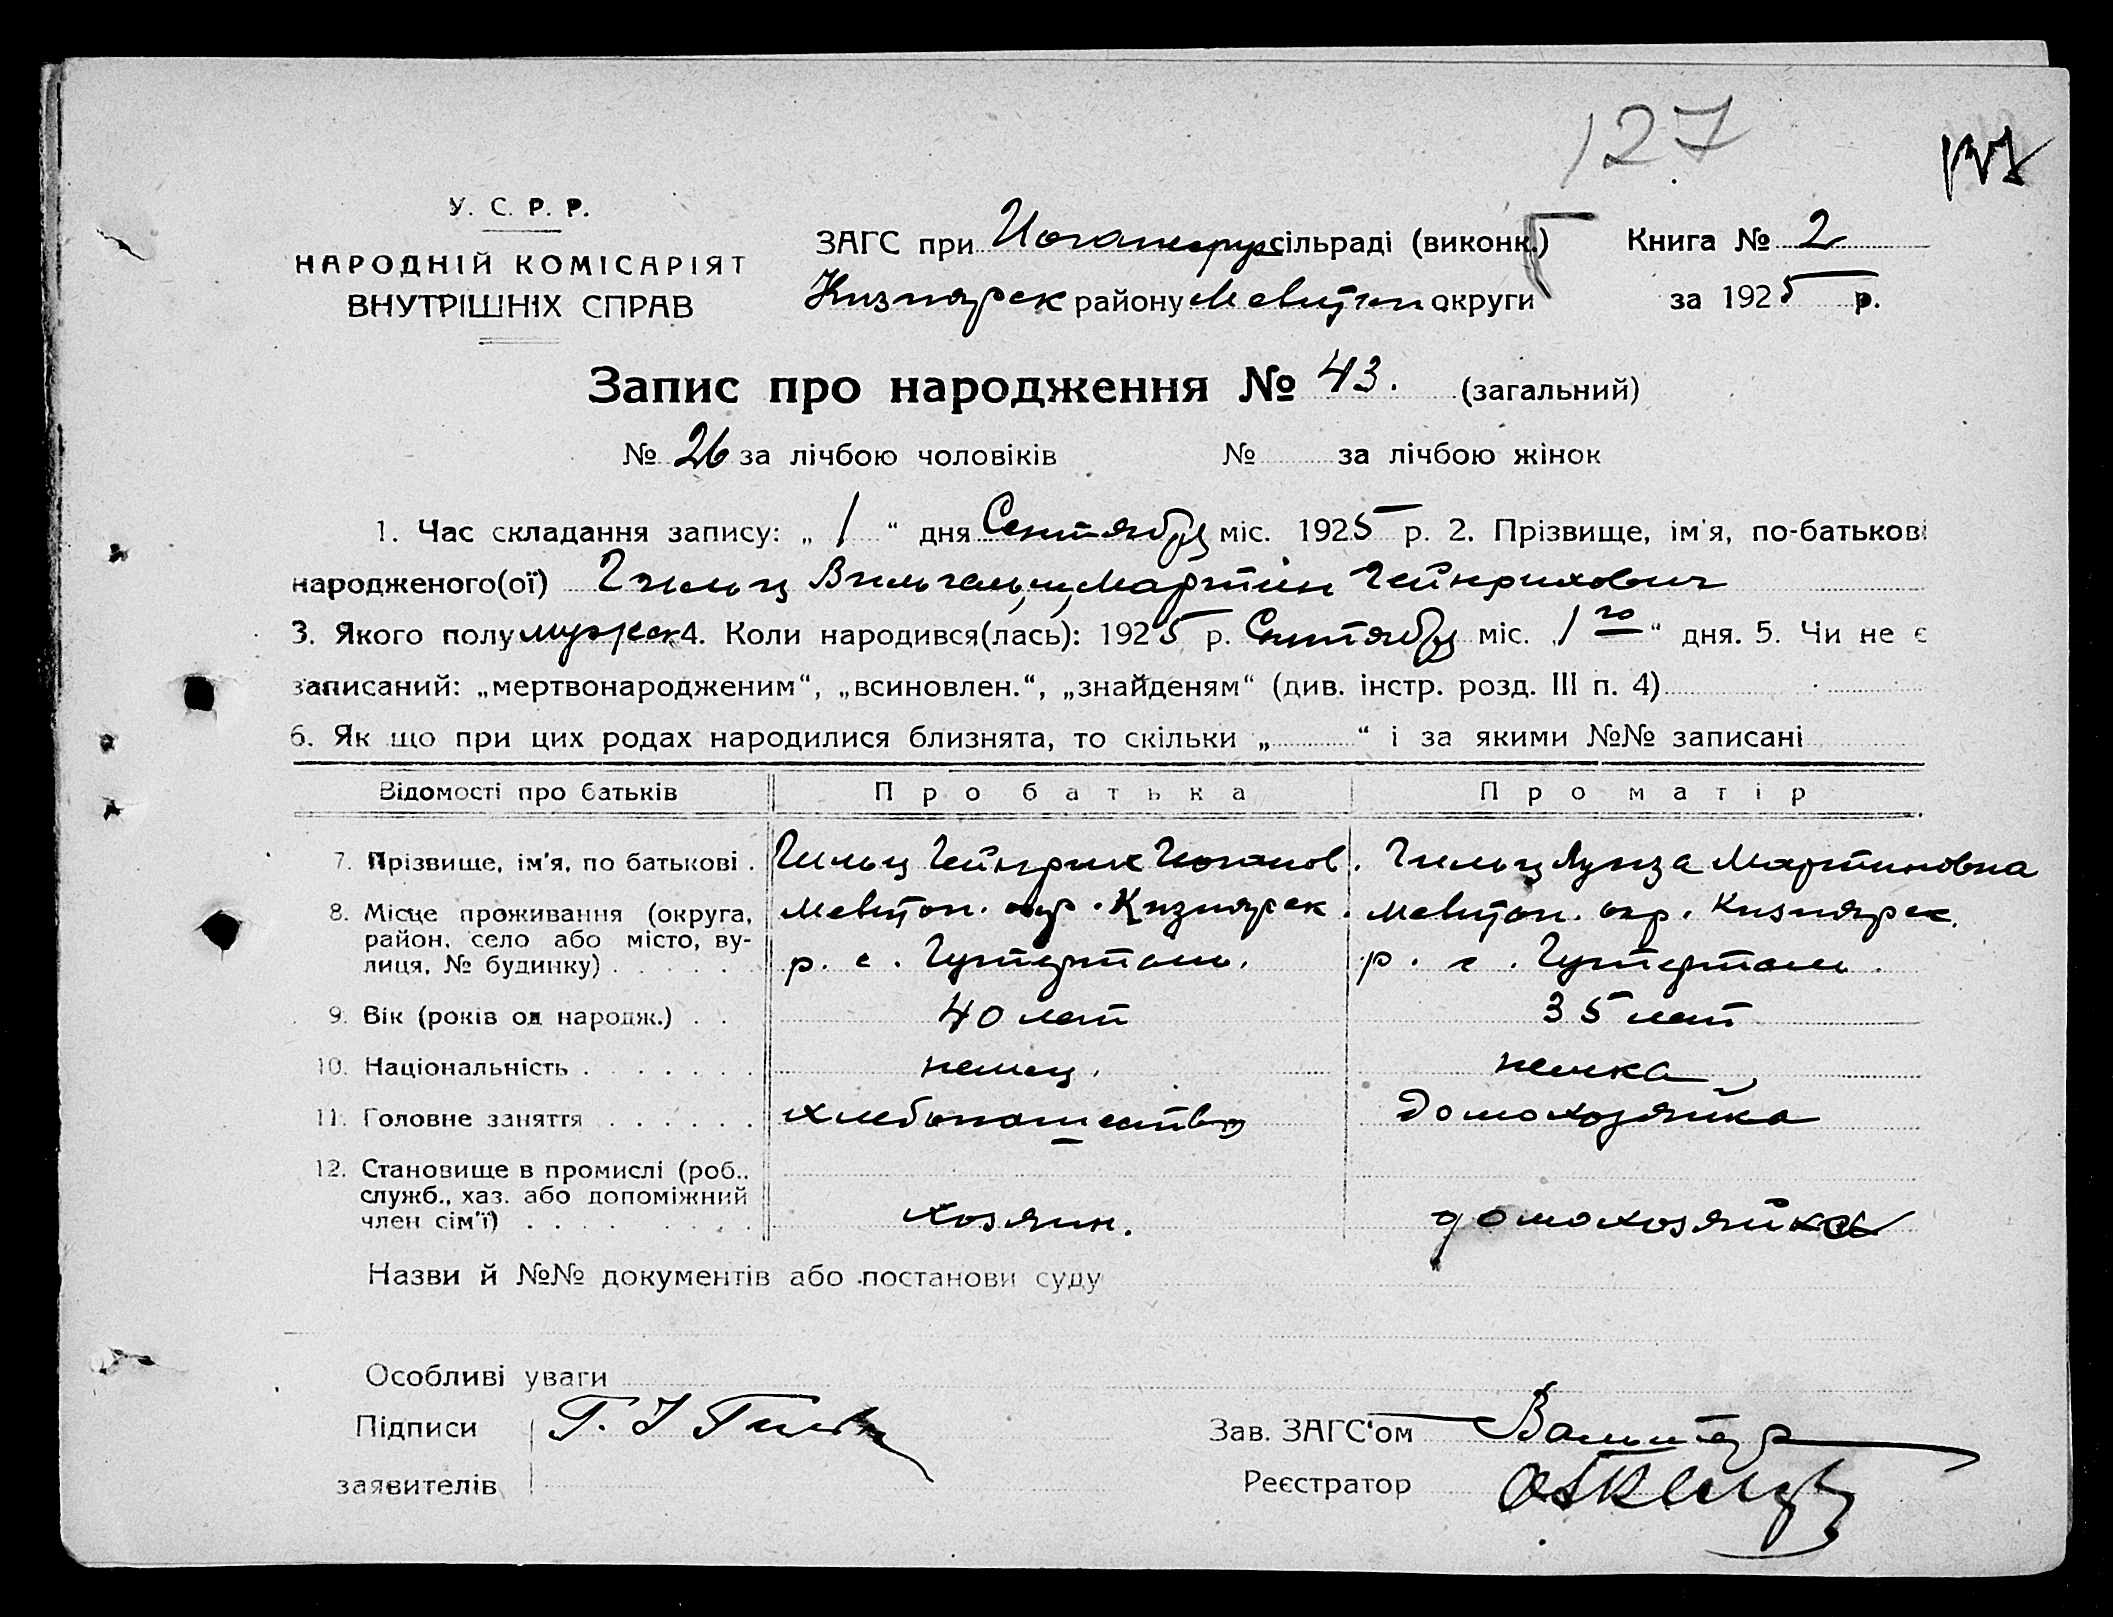 127
У. С. Р. Р.
НАРОДНІЙ КОМІСАРІЯТ
ВНУТРІШНІХ СПРАВ
ЗАГС при Иоганеру сільраді (виконк.)
Книга № 2
Кизиярск району Мелитоп округи
за 1925 р.
Запис про народження № 43. (загальний)
№ 26 за лічбою чоловіків № за лічбою жінок
1. Час складання запису: „ 1 “ дня Сентября міс. 1925 р. 2. Прізвище, ім'я, по-батькові
народженого(ої) Гильц Вильгельм, Мартин Гейнрихович
3. Якого полу мужск 4. Коли народився(лась): 1925 р. Сентября міс. „ 1го “ дня. 5. Чи не є
записаний: „мертвонародженим“, „всиновлен.“, „знайденям“ (див. інстр. розд. III п. 4)
6. Як що при цих родах народилися близнята, то скільки „ “ і за якими №№ записані
Відомості про батьків Про батька Про матір
7. Прізвище, ім'я, по батькові . Гильц Гейнрих Иоганов. Гильц Луиза Мартиновна
8. Місце проживання (округа, район, село або місто, вулиця, № будинку) . . . . .
Мелитоп. окр. Кизиярск. Мелитоп. окр. Кизиярск.
р. с. Гутерталь. р. с. Гутерталь.
9. Вік (років од народж.) . . 40 лет 35 лет
10. Національність . . . . . . . немец. немка
11. Головне заняття . . . . . . хлебопашество Домохозяйка
12. Становище в промислі (роб., служб., хаз. або допоміжний член сім'ї) . . . . . . . .
хозяин. домохозяйка
Назви й №№ документів або постанови суду
Особливі уваги
Підписи Г. И Гильц
заявителів
Зав. ЗАГС'ом Вальтер
Реєстратор